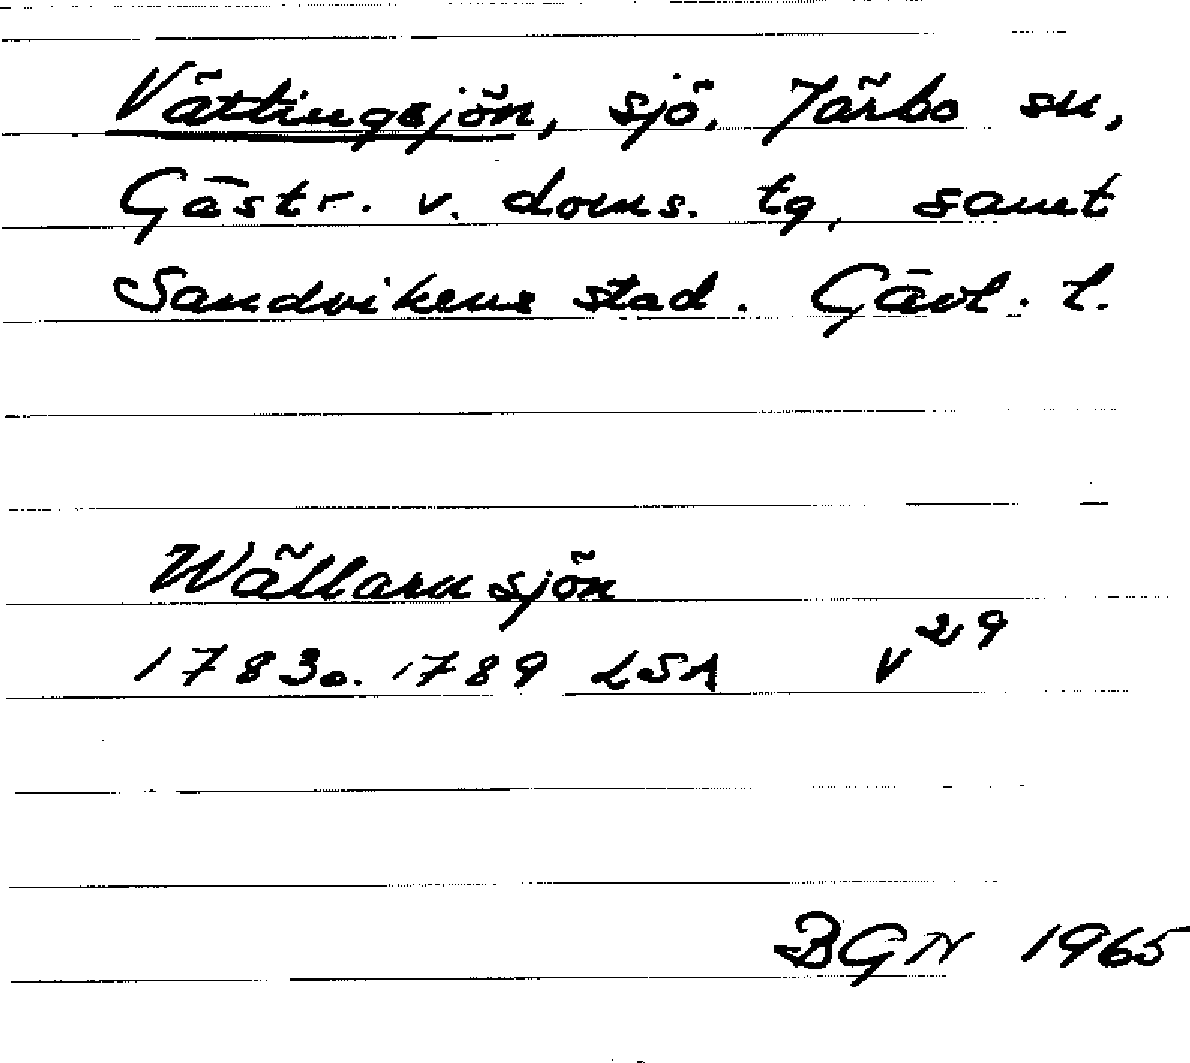 Vättingsjön, sjö. Järbo sn,
Gästr. v. doms. tg, samt
Sandvikens stad. Gävl. l.
Wällarnsjön
1783o. 1789 LSA V 29
BGN 1965